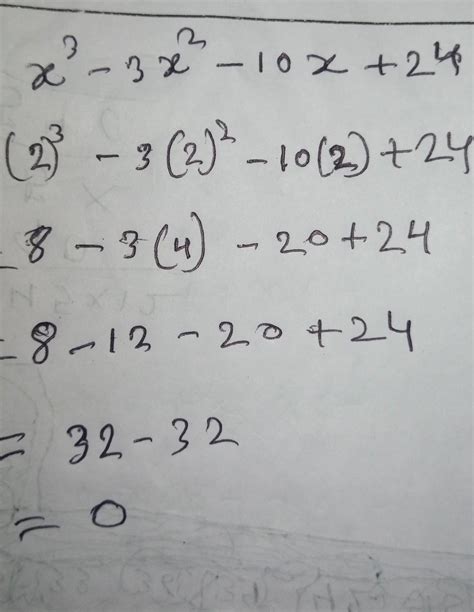 x³ - 3x² - 10x + 24
(2)³ - 3(2)² - 10(2) + 24
= 8 - 3(4) - 20 + 24
= 8 - 12 - 20 + 24
= 32 - 32
= 0